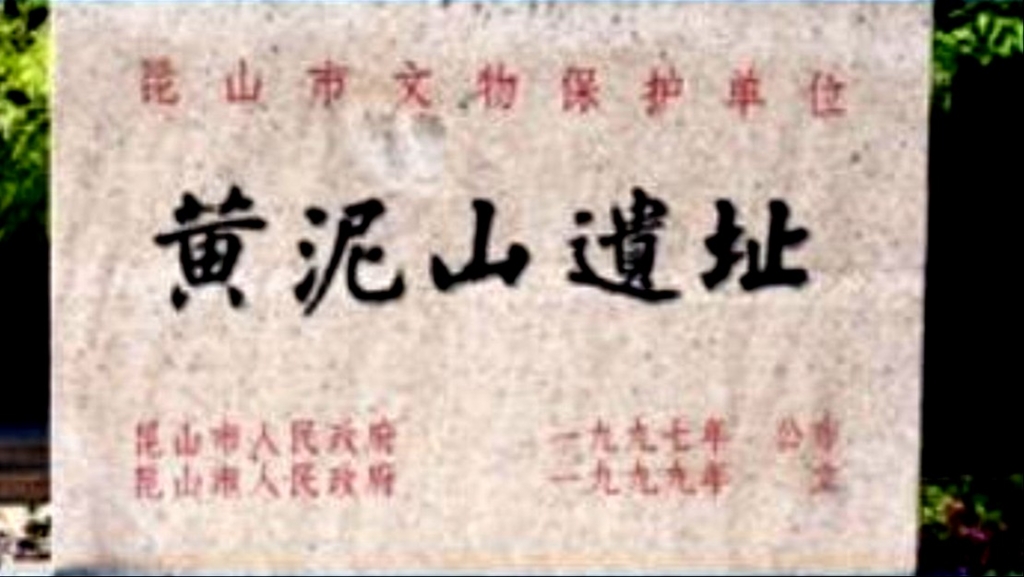 昆山市文物保护单位
黄泥山遺址
昆山市人民政府 一九九七年 公布
昆山市人民政府 一九九九年 立